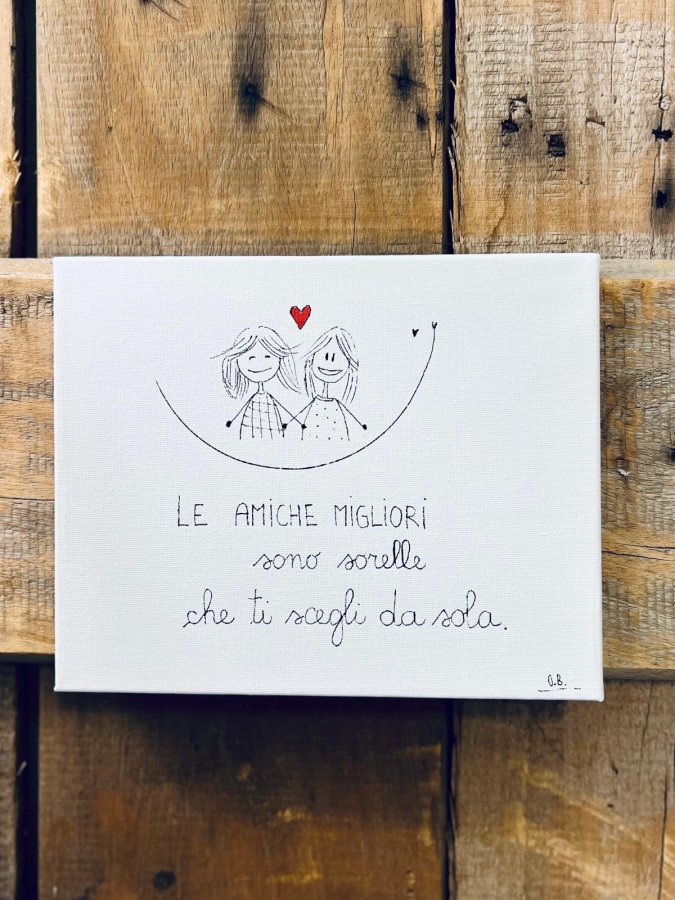 LE AMICHE MIGLIORI
sono sorelle
che ti scegli da sola.
O.B.